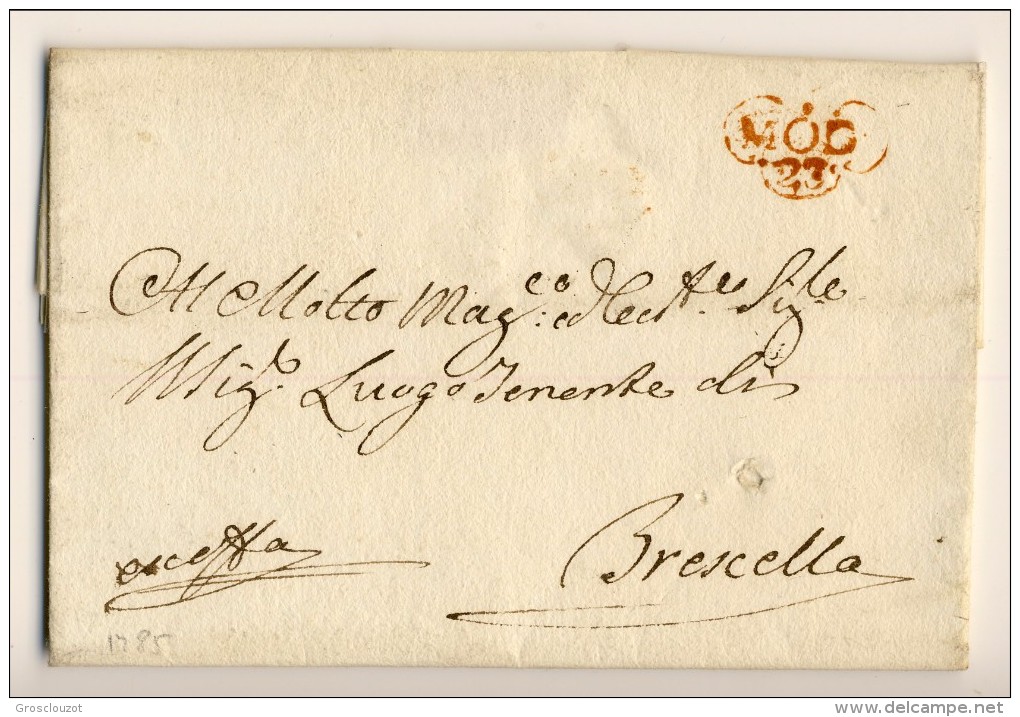 MOD
23
All Molto Mag:co ed Ecc. Sig.le
Sig.e Luogo Tenente di
Brescella
ex offa
1785
Grosclouzot
delcampe.net